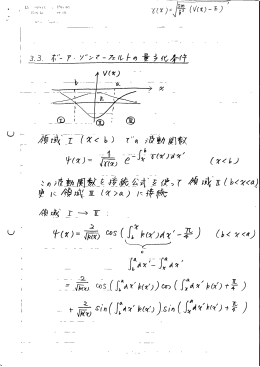 τ(x) = √(2m/ħ²) (V(x) - E)
3.3. ボーア・ゾンマーフェルトの量子化条件
V(x)
b a x
I II III
領域 I (x < b) での波動関数
ψ(x) = 1/√τ(x) e^{-∫_x^b τ(x')dx'} (x < b)
この波動関数を接続公式を使って 領域 II (b < x < a)
更に 領域 III (x > a) に接続
領域 I → II :
ψ(x) = 2/√k(x) cos(∫_b^x k(x')dx' - π/4) (b < x < a)
∫_b^a dx' - ∫_x^a dx'
= 2/√k(x) cos(∫_b^a dx' k(x')) cos(∫_x^a dx' k(x') + π/4)
+ 2/√k(x) sin(∫_b^a dx' k(x')) sin(∫_x^a dx' k(x') + π/4)